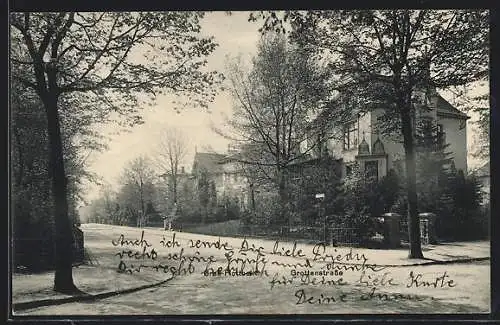 Auch ich sende Dir liebe Friedy
recht schöne Grüße und danke
Dir recht für Deine liebe Karte
Deine Anna
Grottenstraße